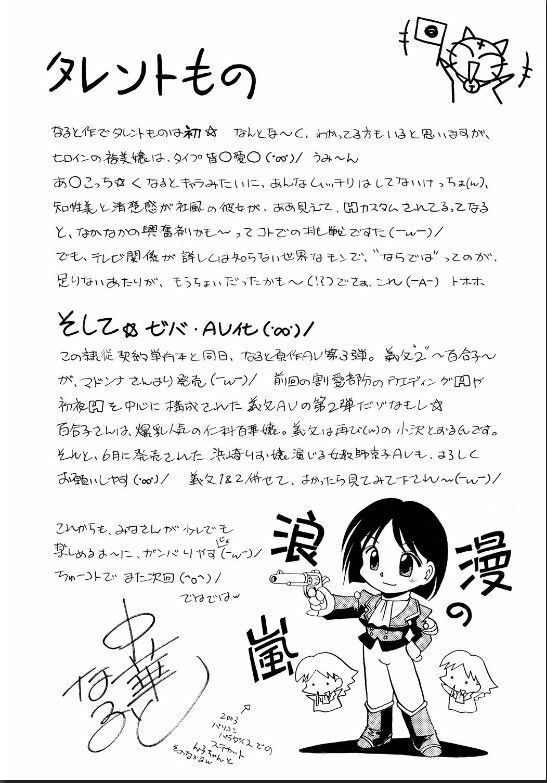 タレントもの
なると作でタレントものは初☆ なんとな～く、わかってる方もいると思いますが、
ヒロインの裕美嬢は、タイプ皆〇愛〇(・∞・)/ うみ～ん
あ〇こっち☆くなるとキャラみたいに、あんなムッチリはしてないけっちょ(w)、
知性美と清楚感が社風の彼女が、ああ見えて、囧カスタムされてるってなる
と、なかなかの興奮剤かも～ってコトでの挑戦ですた(ーwー)/
でも、テレビ関係が詳しくは知らない世界なモンで、“ならでは”ってのが、
足りないあたりが、もうちょいだったかも～(!?)でてゑ、これ(ーAー) トホホ
そして☆ ゼバ・AV化(・∞・)/
この隷従契約単行本と同日、なると原作AV第3弾。義父2～百合子～
が、マドンナさんより発売(ーwー)/ 前回の割愛箇所のウエディング囧や
初夜囧を中心に構成された義父AVの第2弾だゾなもし☆
百合子さんは、爆乳人気の仁科百華嬢。義父は再び(w)の小沢とおるんです。
それと、6月に発売された浜崎りお嬢演じる女教師京子AVも、よろしく
お願いしやす(・∞・)/ 義父1&2併せて、よかったら見てみて下さん～(ーwー)/
これからも、みなさんが少しでも
楽しめるよーに、ガンバりやす(ーwー)/
ちゅーコトでまた次回(^o^)/
ではではw
浪漫の嵐
中華なると
2003
パソコン
パラダイスでの
ステカート